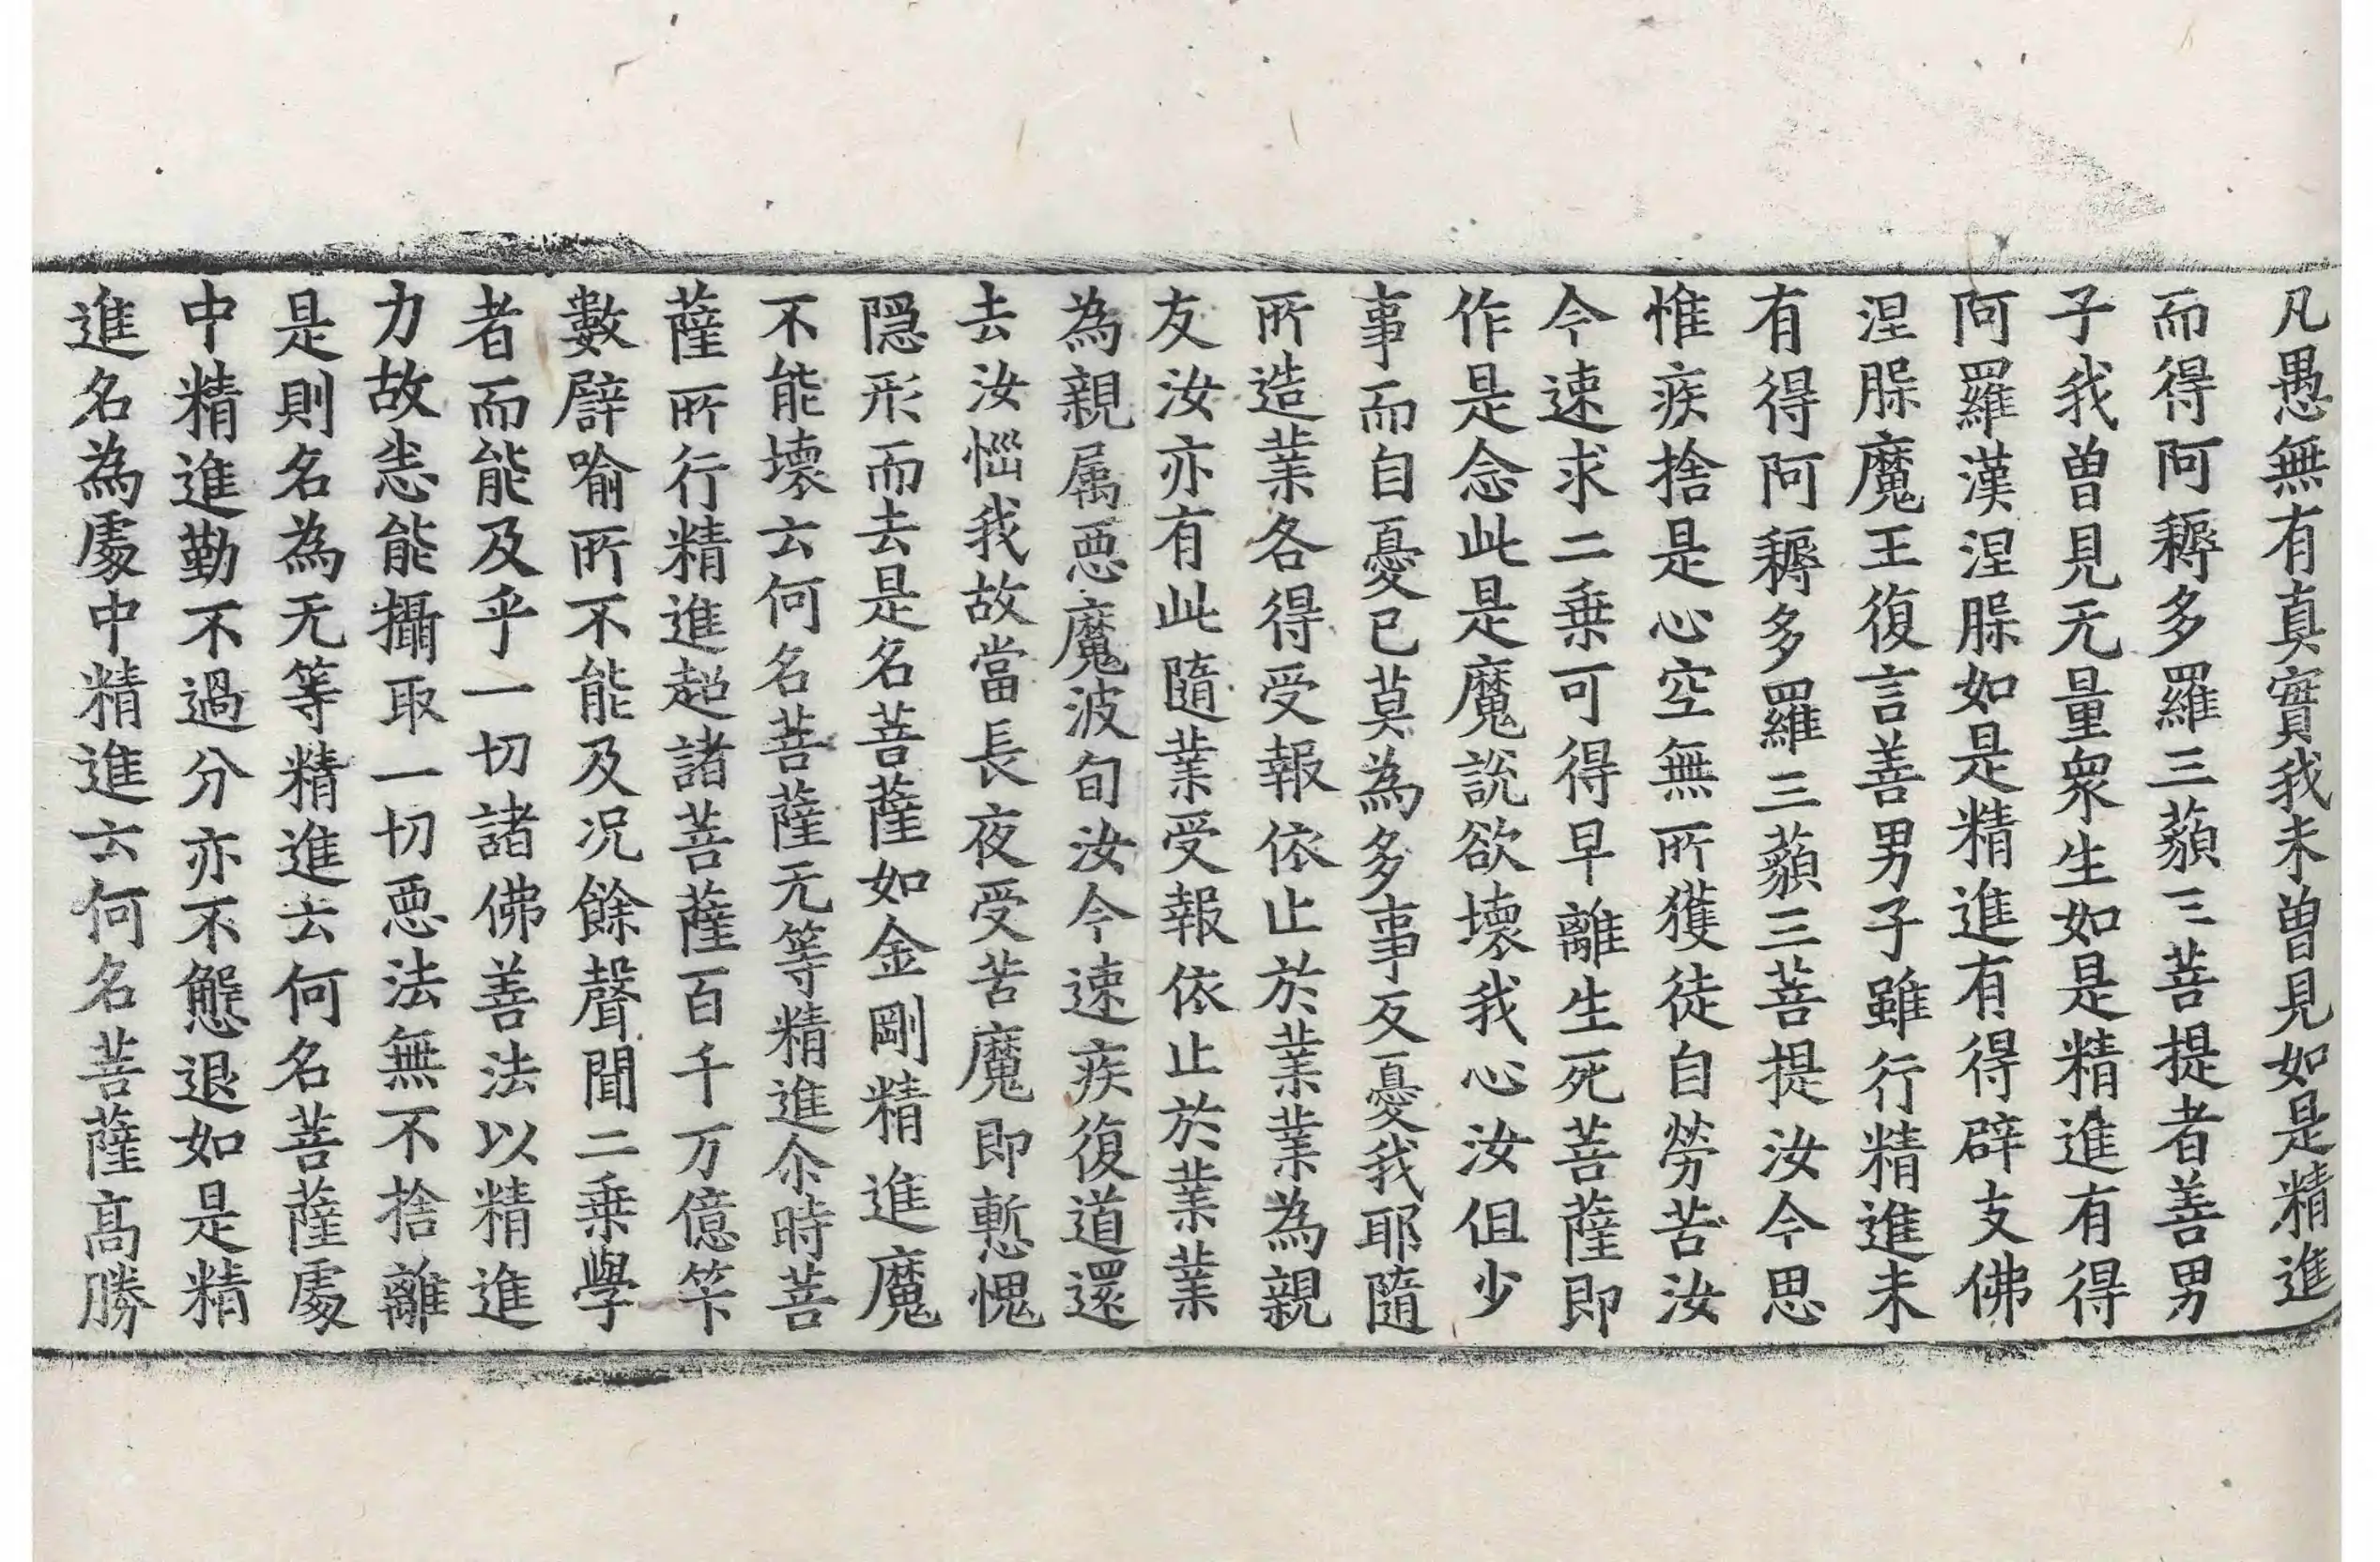 凡愚無有真實我未曾見如是精進
而得阿耨多羅三藐三菩提者善男
子我曾見无量衆生如是精進有得
阿羅漢涅槃如是精進有得辟支佛
涅槃魔王復言善男子雖行精進未
有得阿耨多羅三藐三菩提汝今思
惟疾捨是心空無所獲徒自勞苦汝
今速求二乗可得早離生死菩薩即
作是念此是魔說欲壞我心汝但少
事而自憂已莫為多事反憂我耶隨
所造業各得受報依止於業業為親
友汝亦有此隨業受報依止於業業
為親属惡魔波旬汝今速疾復道還
去汝惱我故當長夜受苦魔即慙愧
隱形而去是名菩薩如金剛精進魔
不能壞云何名菩薩无等精進尒時菩
薩所行精進超諸菩薩百千万億筭
數譬喻所不能及况餘聲聞二乗學
者而能及乎一切諸佛善法以精進
力故悉能攝取一切惡法無不捨離
是則名為无等精進云何名菩薩處
中精進勤不過分亦不懈退如是精
進名為處中精進云何名菩薩高勝